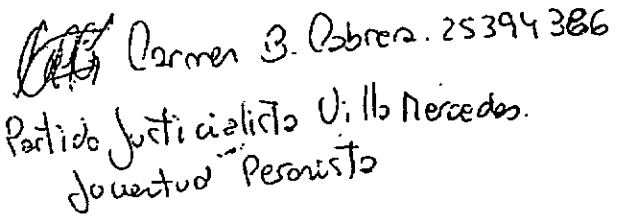 Carmen B. Cabrera. 25394386
Partido Justicialista Villa Mercedes.
Juventud Peronista